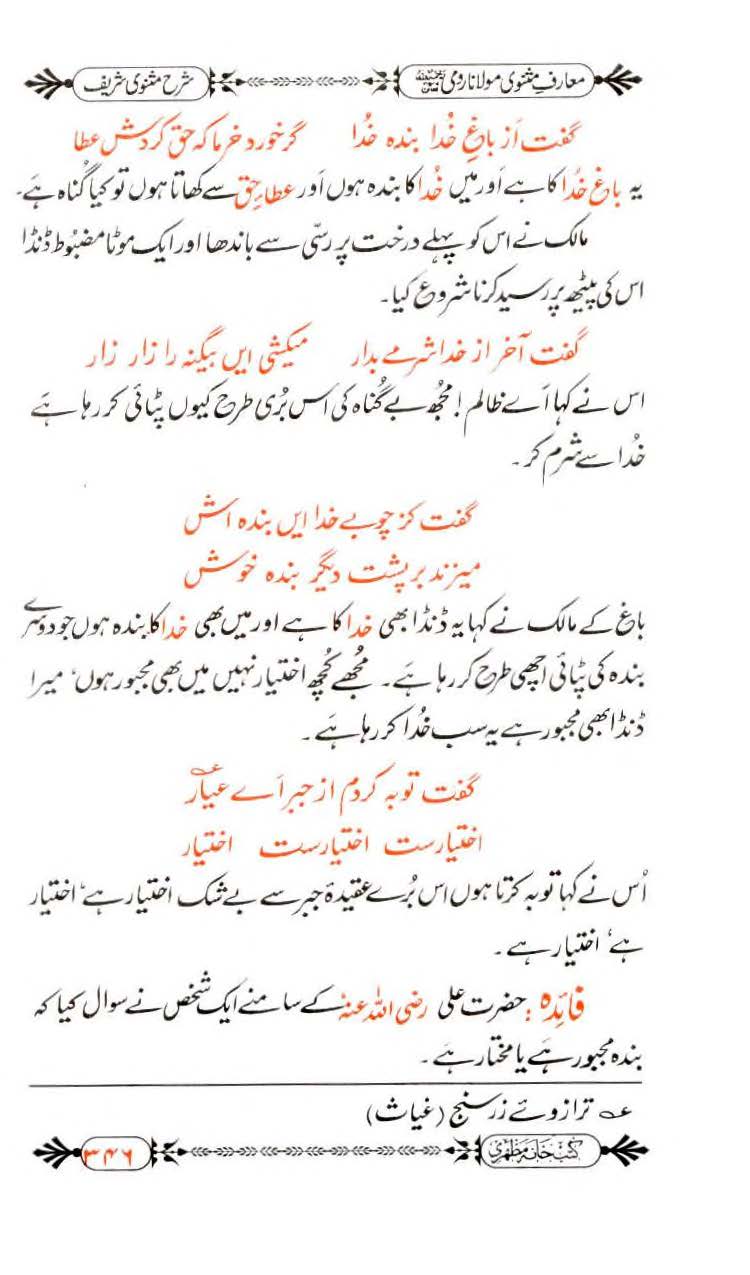 معارفِ مثنوی مولانا رومی رحمۃاللہ علیہ شرح مثنوی شریف
گفت اَز باغِ خُدا بندہ خُدا گر خورد خرما کہ حق کردش عطا
یہ باغ خُدا کا ہے اَور میں خُدا کا بندہ ہوں اَور عطاءِ حق سے کھاتا ہوں تو کیا گُناہ ہَے۔
مالک نے اس کو پہلے درخت پر رسّی سے باندھا اور ایک موٹا مضبُوط ڈنڈا
اس کی پیٹھ پر رسید کرنا شروع کیا۔
گفت آخر از خدا شرمے بدار میکشی ایں بیگنہ را زار زار
اس نے کہا اَے ظالم! مجھُ بے گُناہ کی اس بُری طرح کیوں پٹائی کر رہا ہَے
خُدا سے شرم کر۔
گفت کز چوبے خدا ایں بندہ اش
میزند بر پشت دیگر بندہ خوش
باغ کے مالک نے کہا یہ ڈنڈا بھی خدا کا ہے اور میں بھی خدا کا بندہ ہوں جو دوسرے
بندہ کی پٹائی اچھی طرح کر رہا ہَے۔ مجُھے کُچھ اختیار نہیں میں بھی مجبور ہوں، میرا
ڈنڈا بھی مجبور ہے یہ سب خُدا کر رہا ہَے۔
گفت توبہ کردم از جبر اَے عیار؎
اختیارست اختیارست اختیار
اُس نے کہا توبہ کرتا ہوں اس بُرے عقیدۂ جبر سے بے شک اختیار ہے، اختیار
ہے، اختیار ہے۔
فائدہ: حضرت علی رضی اللہ عنہ کے سامنے ایک شخص نے سوال کیا کہ
بندہ مجبور ہَے یا مختار ہَے۔
؎ ترازوئے زر سنج (غیاث)
کتب خانہ مظہری ۳۴۶